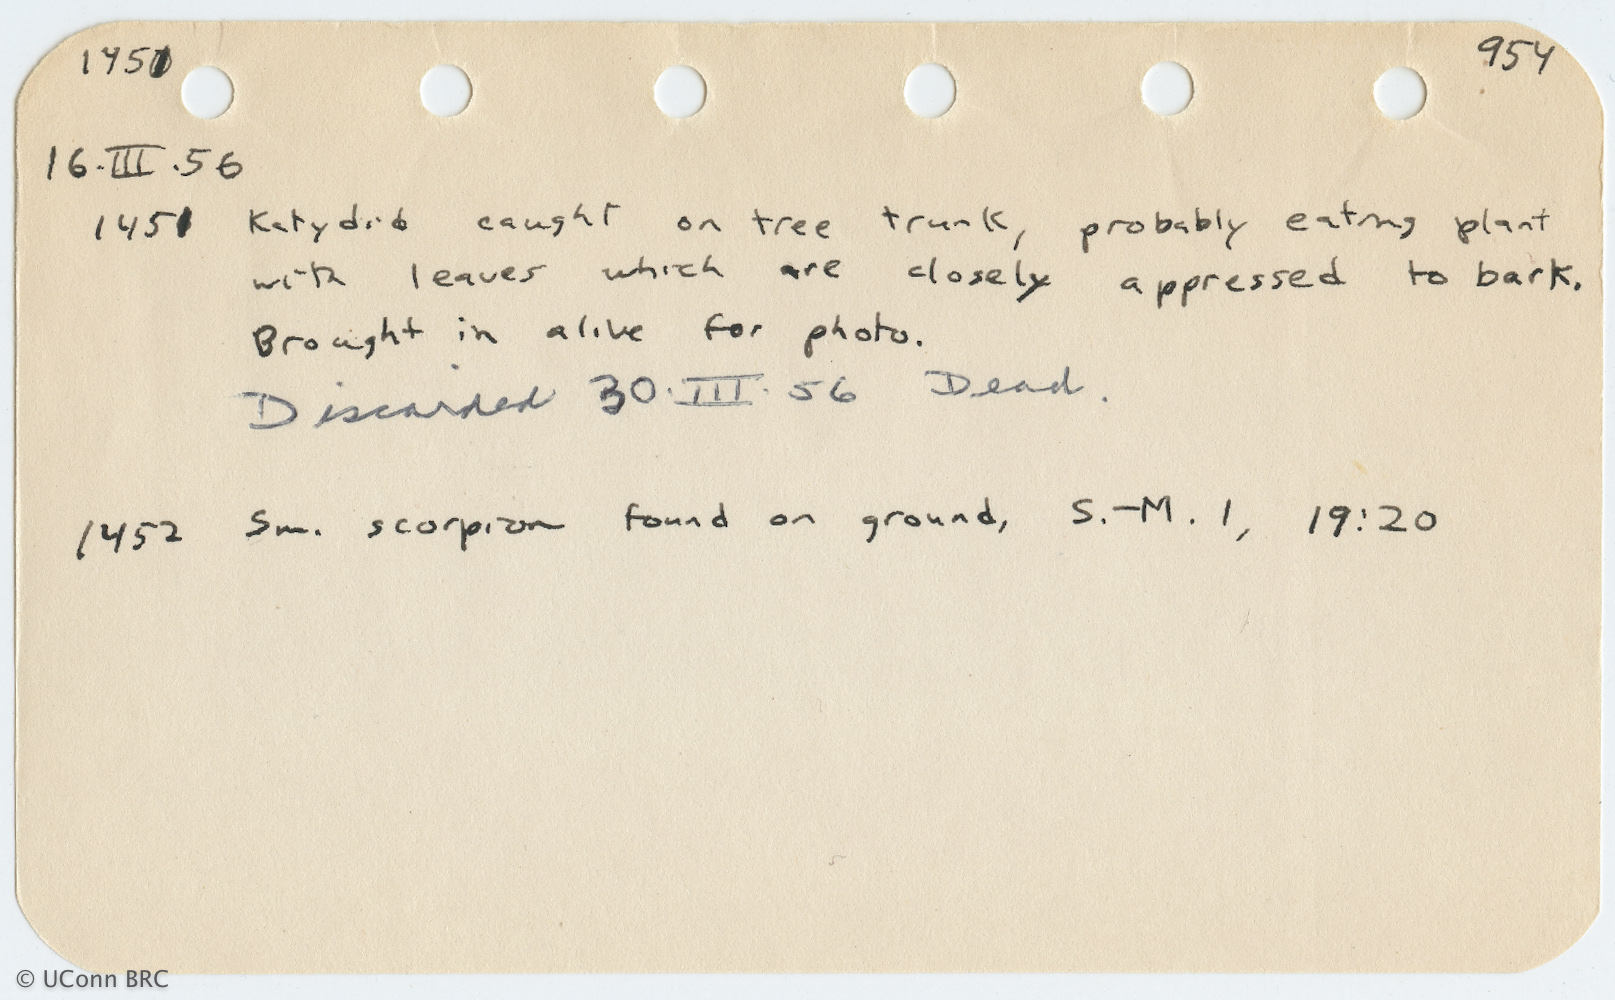 1451
954
16.III.56
1451 Katydid caught on tree trunk, probably eating plant
with leaves which are closely appressed to bark.
Brought in alive for photo.
Discarded 30.III.56 Dead.
1452 Sm. scorpion found on ground, S.-M. 1, 19:20
© UConn BRC